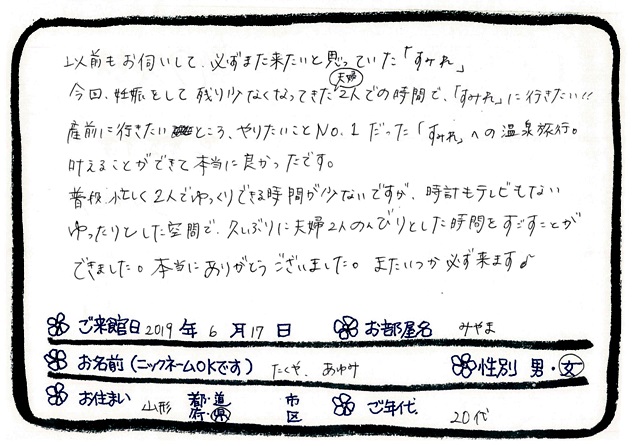 以前もお伺いして、必ずまた来たいと思っていた「すみれ」
今回、妊娠をして残り少なくなってきた夫婦2人での時間で、「すみれ」に行きたい!!
産前に行きたいところ、やりたいことNO.1だった「すみれ」への温泉旅行。
叶えることができて本当に良かったです。
普段、忙しく2人でゆっくりできる時間が少ないですが、時計もテレビもない
ゆったりとした空間で、久しぶりに夫婦2人のんびりとした時間をすごすことが
できました。本当にありがとうございました。またいつか必ず来ます♪
ご来館日 2019 年 6 月 17 日 お部屋名 みやま
お名前(ニックネームOKです) たくや、あゆみ 性別 男・女
お住まい 山形 都・道 府・県 市 区 ご年代 20代